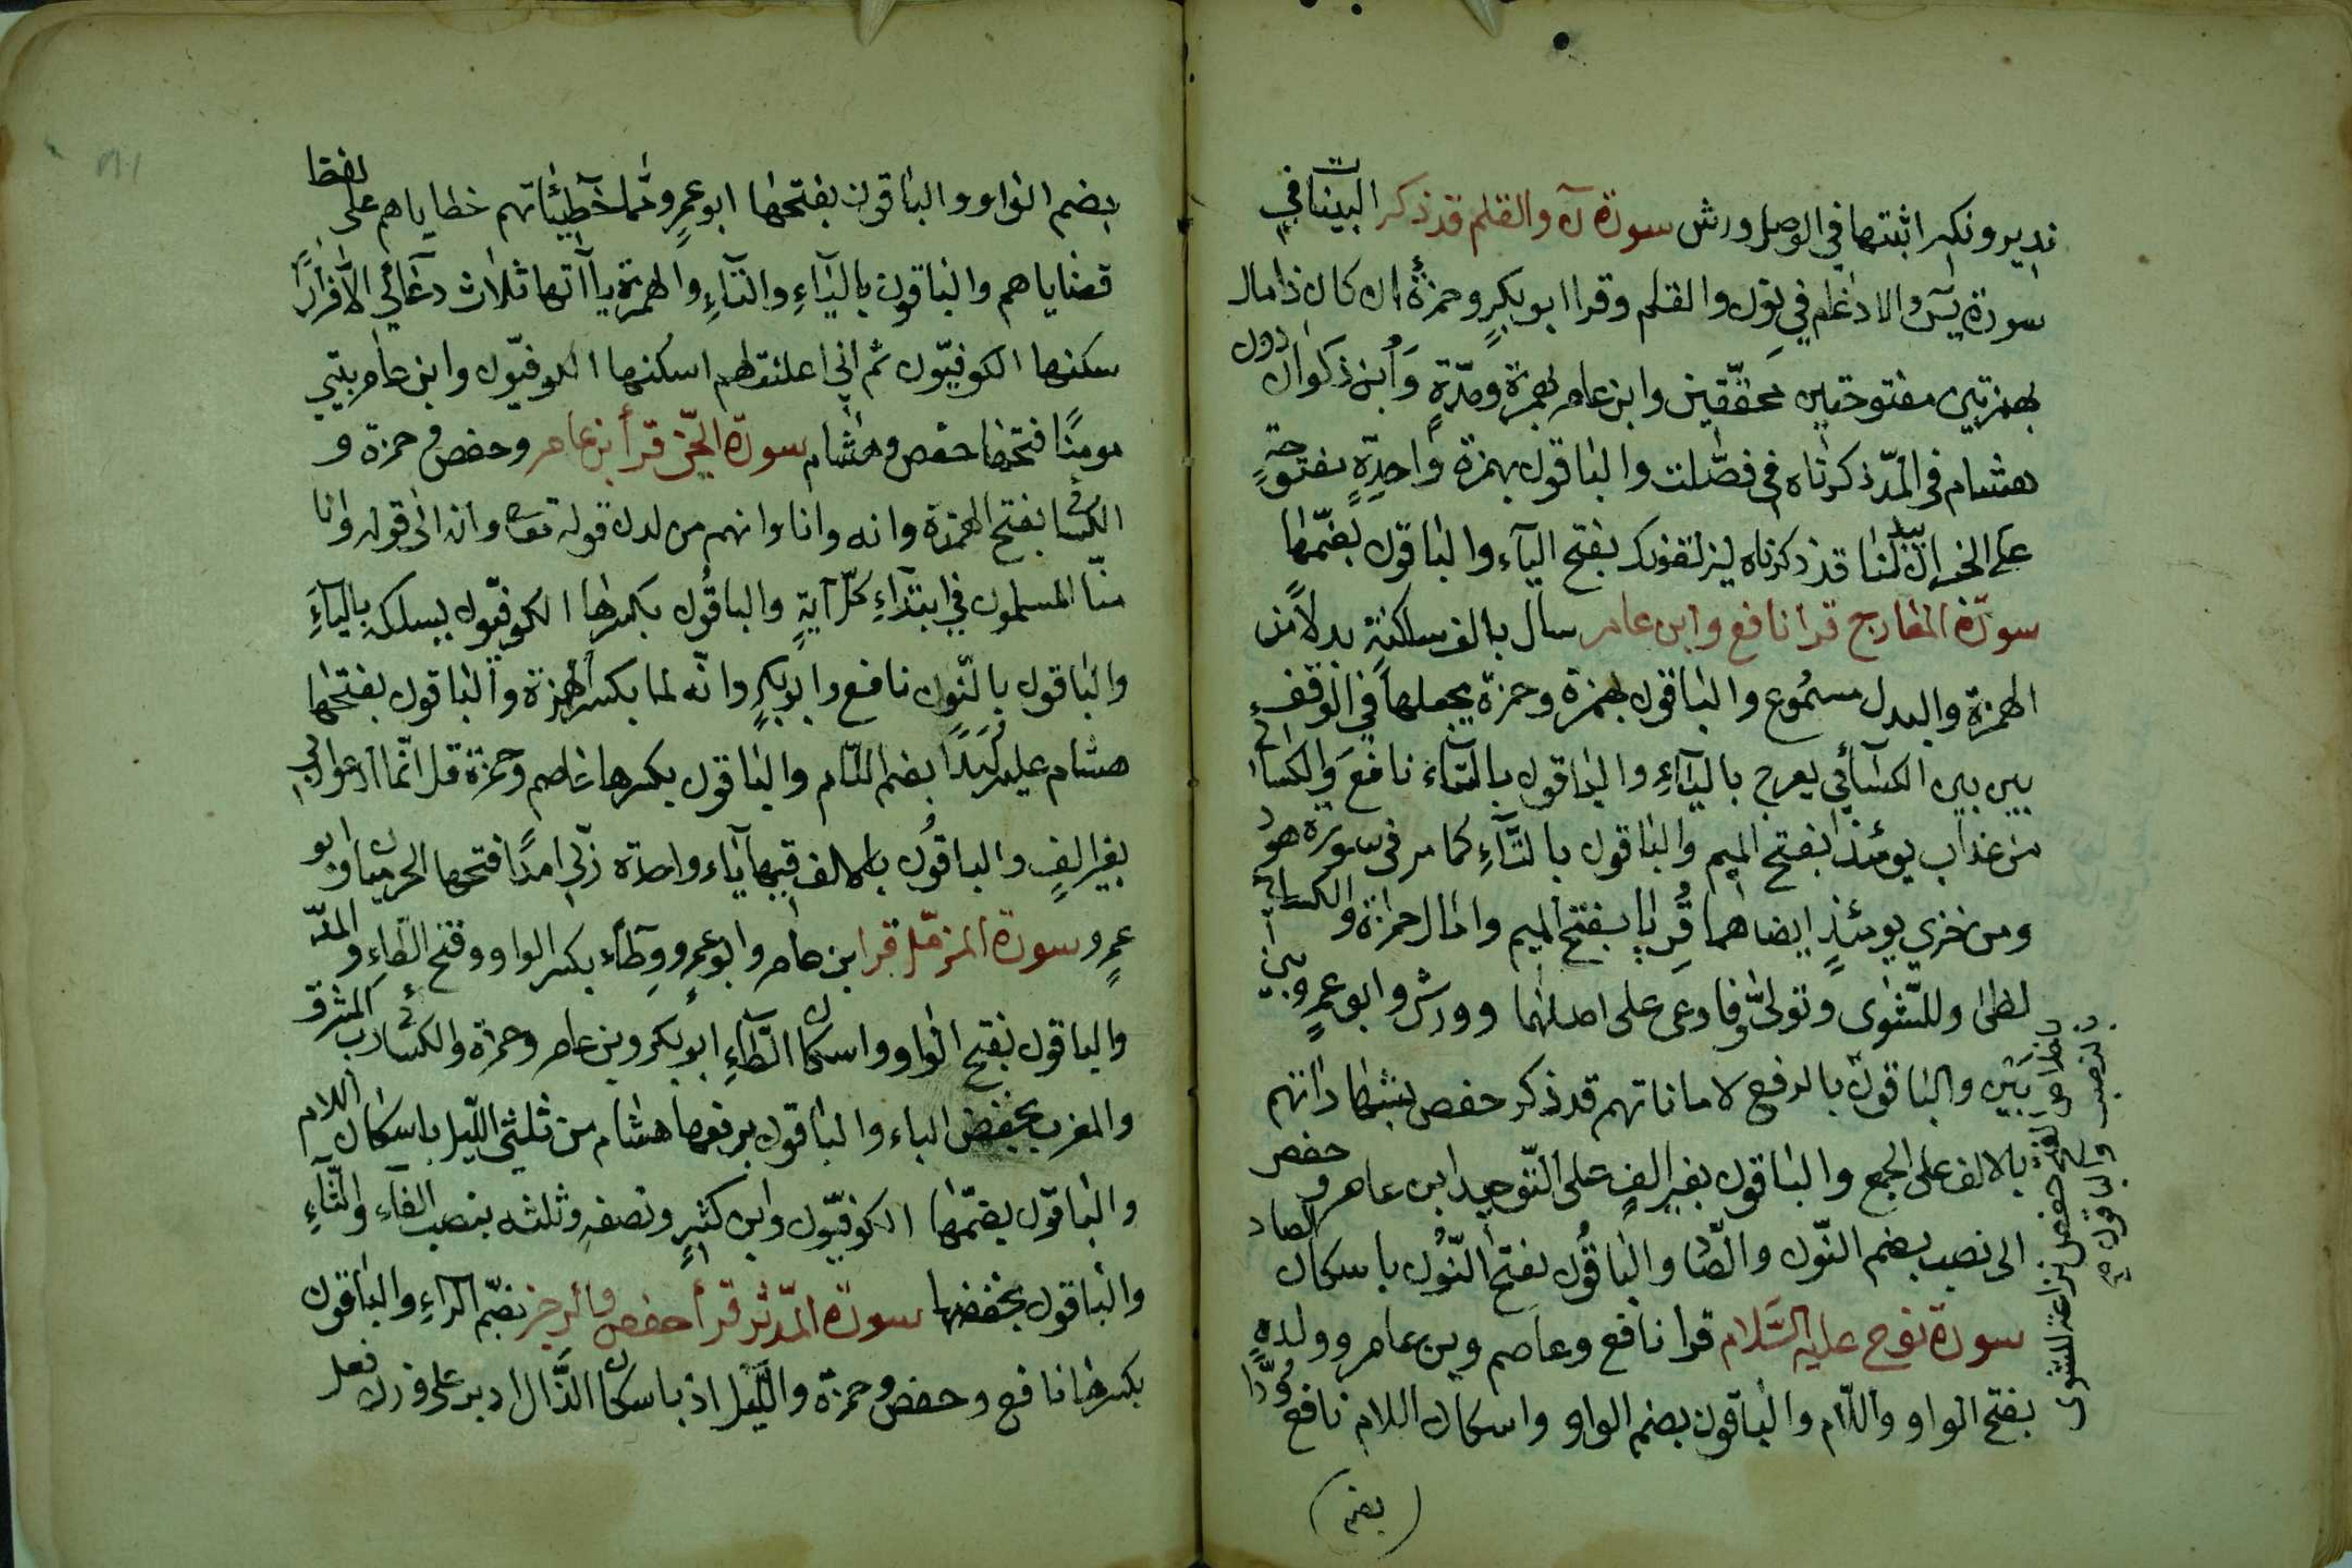 نذير ونكير اثبتهما في الوصل ورش سورة ن والقلم قد ذكر البيتات في
سورة يس والادغام في نون والقلم وقرا ابو بكر وحمزة أان كان ذا مال
بهمزتين مفتوحتين محققتين وابن عامر بهمزة ومدّة وابن ذكوان دون
هشام في المدّ ذكرناه في فصّلت والباقون بهمزة واحدة مفتوحة
على الخبر ان يبدلنا قد ذكرناه ليزلقونك بفتح الياء والباقون بضمّها
سورة المعارج قرا نافع وابن عامر سال بالف ساكنة بدلا من
الهمزة والبدل مسموع والباقون بهمزة وحمزة يجعلها في الوقف
بين بين الكسائي يعرج بالياء والباقون بالتاء نافع والكسائي
من عذاب يومئذ بفتح الميم والباقون بالتاء كما مر في سورة هود
ومن خزي يومئذ ايضا هما قريا بفتح الميم وامال حمزة والكسائي
لظى وللشوى وتولى فاوعى على اصلهما وورش وابو عمرو بين
بين والباقون بالرفع لاماناتهم قد ذكر حفص بشهاداتهم
بالالف على الجمع والباقون بغير الف على التوحيد ابن عامر وحفص
الى نصب بضم النون والصاد والباقون بفتح النون باسكان الصاد
سورة نوح عليه السلام قرا نافع وعاصم وبن عامر وولده
بفتح الواو واللام والباقون بضم الواو واسكان اللام نافع ودّا
حفص نزاعة للشوى
بالنصب والباقون
(بضم)
بضم الواو والباقون بفتحها ابو عمرو مما خطيئاتهم خطاياهم على لفظ
قضاياهم والباقون بالياء والتاء والهمزة ياآتها ثلاث دعائي الا فرارا
سكنها الكوفيون ثم اني اعلنت لهم اسكنها الكوفيون وابن عامر بيتي
مومنا فتحها حفص وهشام سورة الجنّ قرأ ابن عامر وحفص وحمزة و
الكسائي بفتح الهمزة وانه وانا وانهم من لدن قوله تعالى وانه الى قوله وانا
منّا المسلمون في ابتداء كلّ آية والباقون بكسرها الكوفيون يسلكه بالياء
والباقون بالنون نافع وابو بكر وانه لما بكسر الهمزة والباقون بفتحها
هشام عليه لبدا بضم اللام والباقون بكسرها عاصم وحمزة قل انما ادعوا ربي
بغير الف والباقون بالالف فيها ياء واحدة ربي امدا فتحها الحرميان وابو
عمرو سورة المزمّل قرا بن عامر وابو عمرو وطاء بكسر الواو وفتح الطاء والمدّ
والباقون بفتح الواو واسكان الطاء ابو بكر وبن عامر وحمزة والكسائي رب المشرق
والمغرب بخفض الباء والباقون برفعها هشام من ثلثي الليل باسكان اللام
والباقون بضمّها الكوفيون وابن كثير ونصفه وثلثه بنصب الفاء والثاء
والباقون بخفضها سورة المدثر قرأ حفص والرجز بضم الراء والباقون
بكسرها نافع وحفص وحمزة والليل اذ باسكان الذال ادبر على وزن فعل